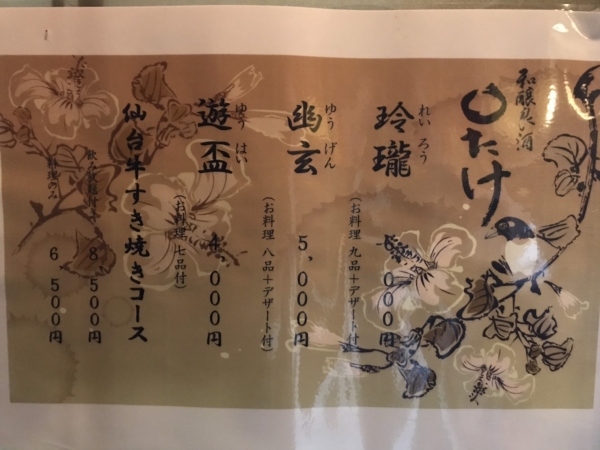 和醸良い酒
○たけ
れいろう
玲瓏 6,000円
(お料理 九品+デザート付)
ゆうげん
幽玄 5,000円
(お料理 八品+デザート付)
ゆうはい
遊盃 4,000円
(お料理 七品付)
仙台牛すき焼きコース
8,500円
料理のみ 6,500円